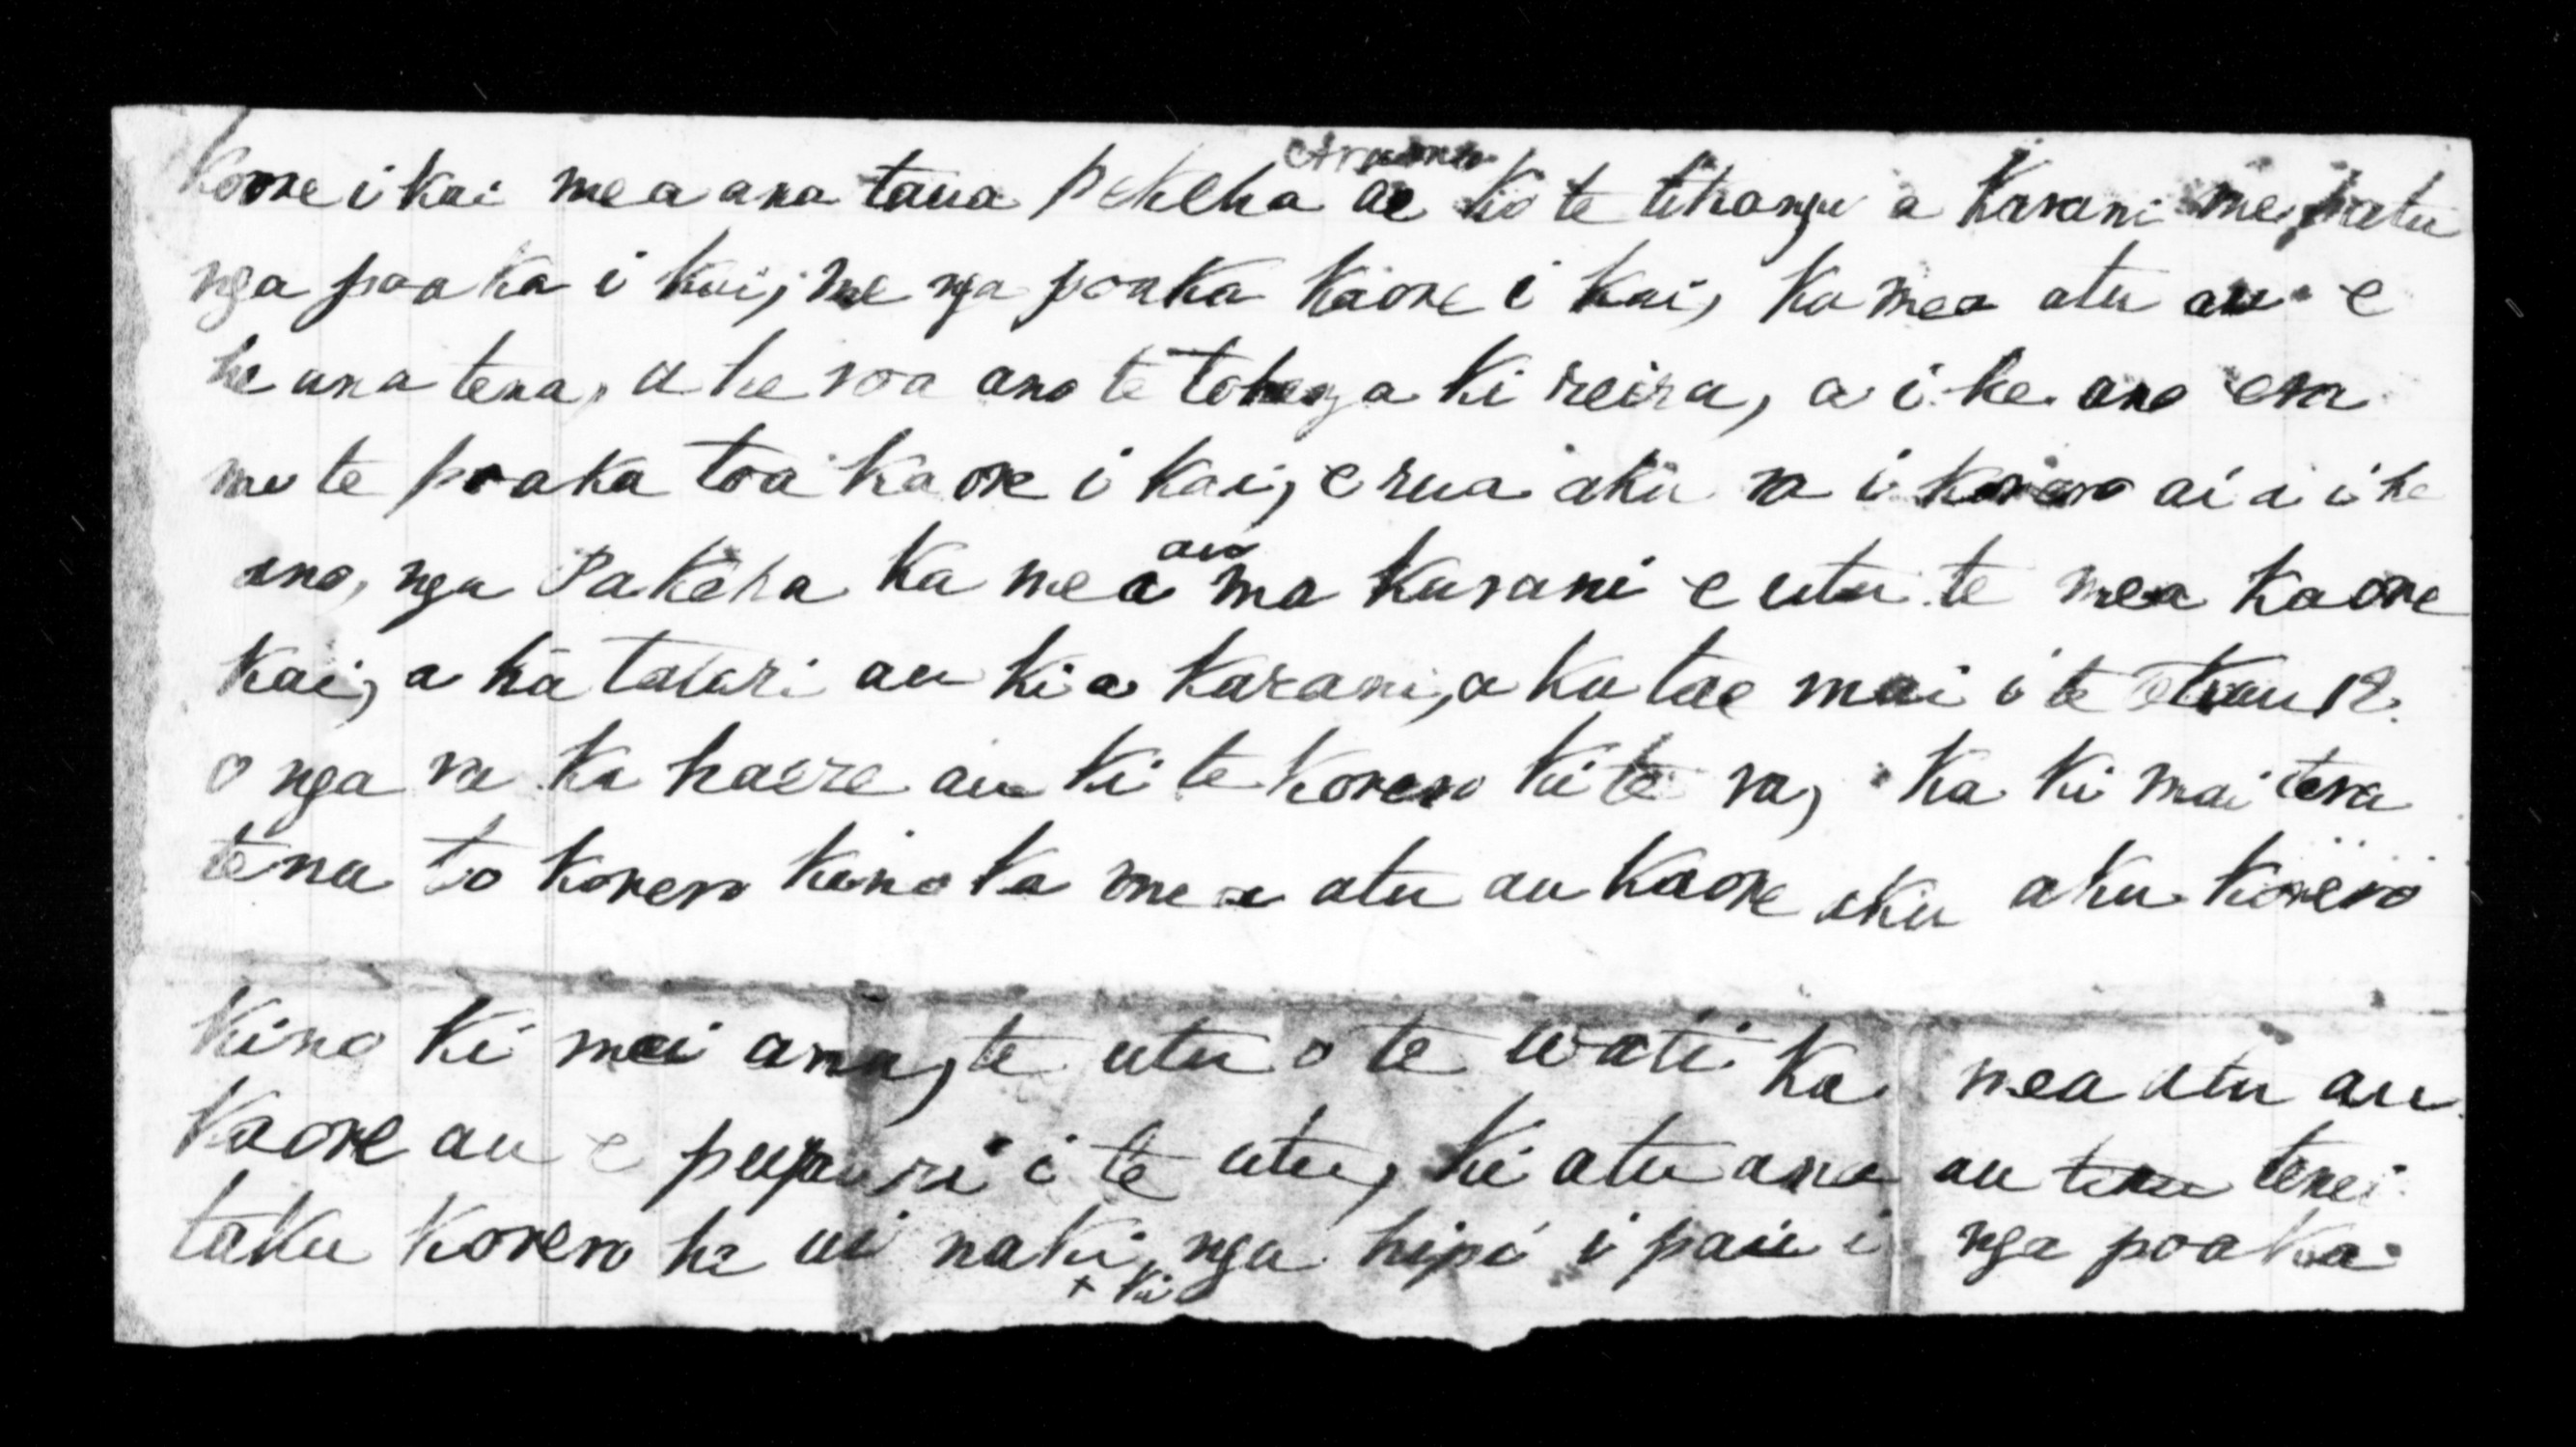 Kaore i kai mea ana taua Pakeha ae ko te tikanga a Karani me patu
nga poaka i kai, me nga poaka kaore i kai, ka mea atu au e
he ana tena, a he roa ano te tohenga ki reira, a i he ano era
mo te poaka toa kaore i kai, e rua aku ra i korero ai a i he
ano, nga Pakeha ka mea au ma Karani e utu te mea kaore
kai, a ka tatari au ki a Karani, a ka tae mai i te 12.
o nga ra ka haere au ki te korero ki te ra, ka ki mai tera
tena to korero kino ka mea atu au kaore aku aku korero
kino ki mai ana, te utu o te wati ka mea atu au
kaore au e pupuri i te utu, ki atu ana au tenei
taku korero he ui naki nga hipi i pau i nga poaka
+ ki